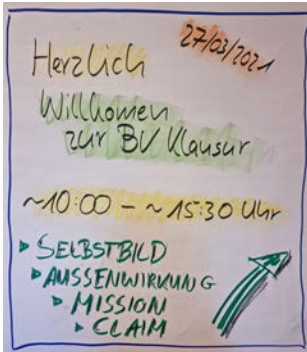 27/03/2021
Herzlich
Willkomen
zur BV Klausur
~10:00 - ~15:30 Uhr
▸ SELBSTBILD
▸ AUSSENWIRKUNG
▸ MISSION
▸ CLAIM